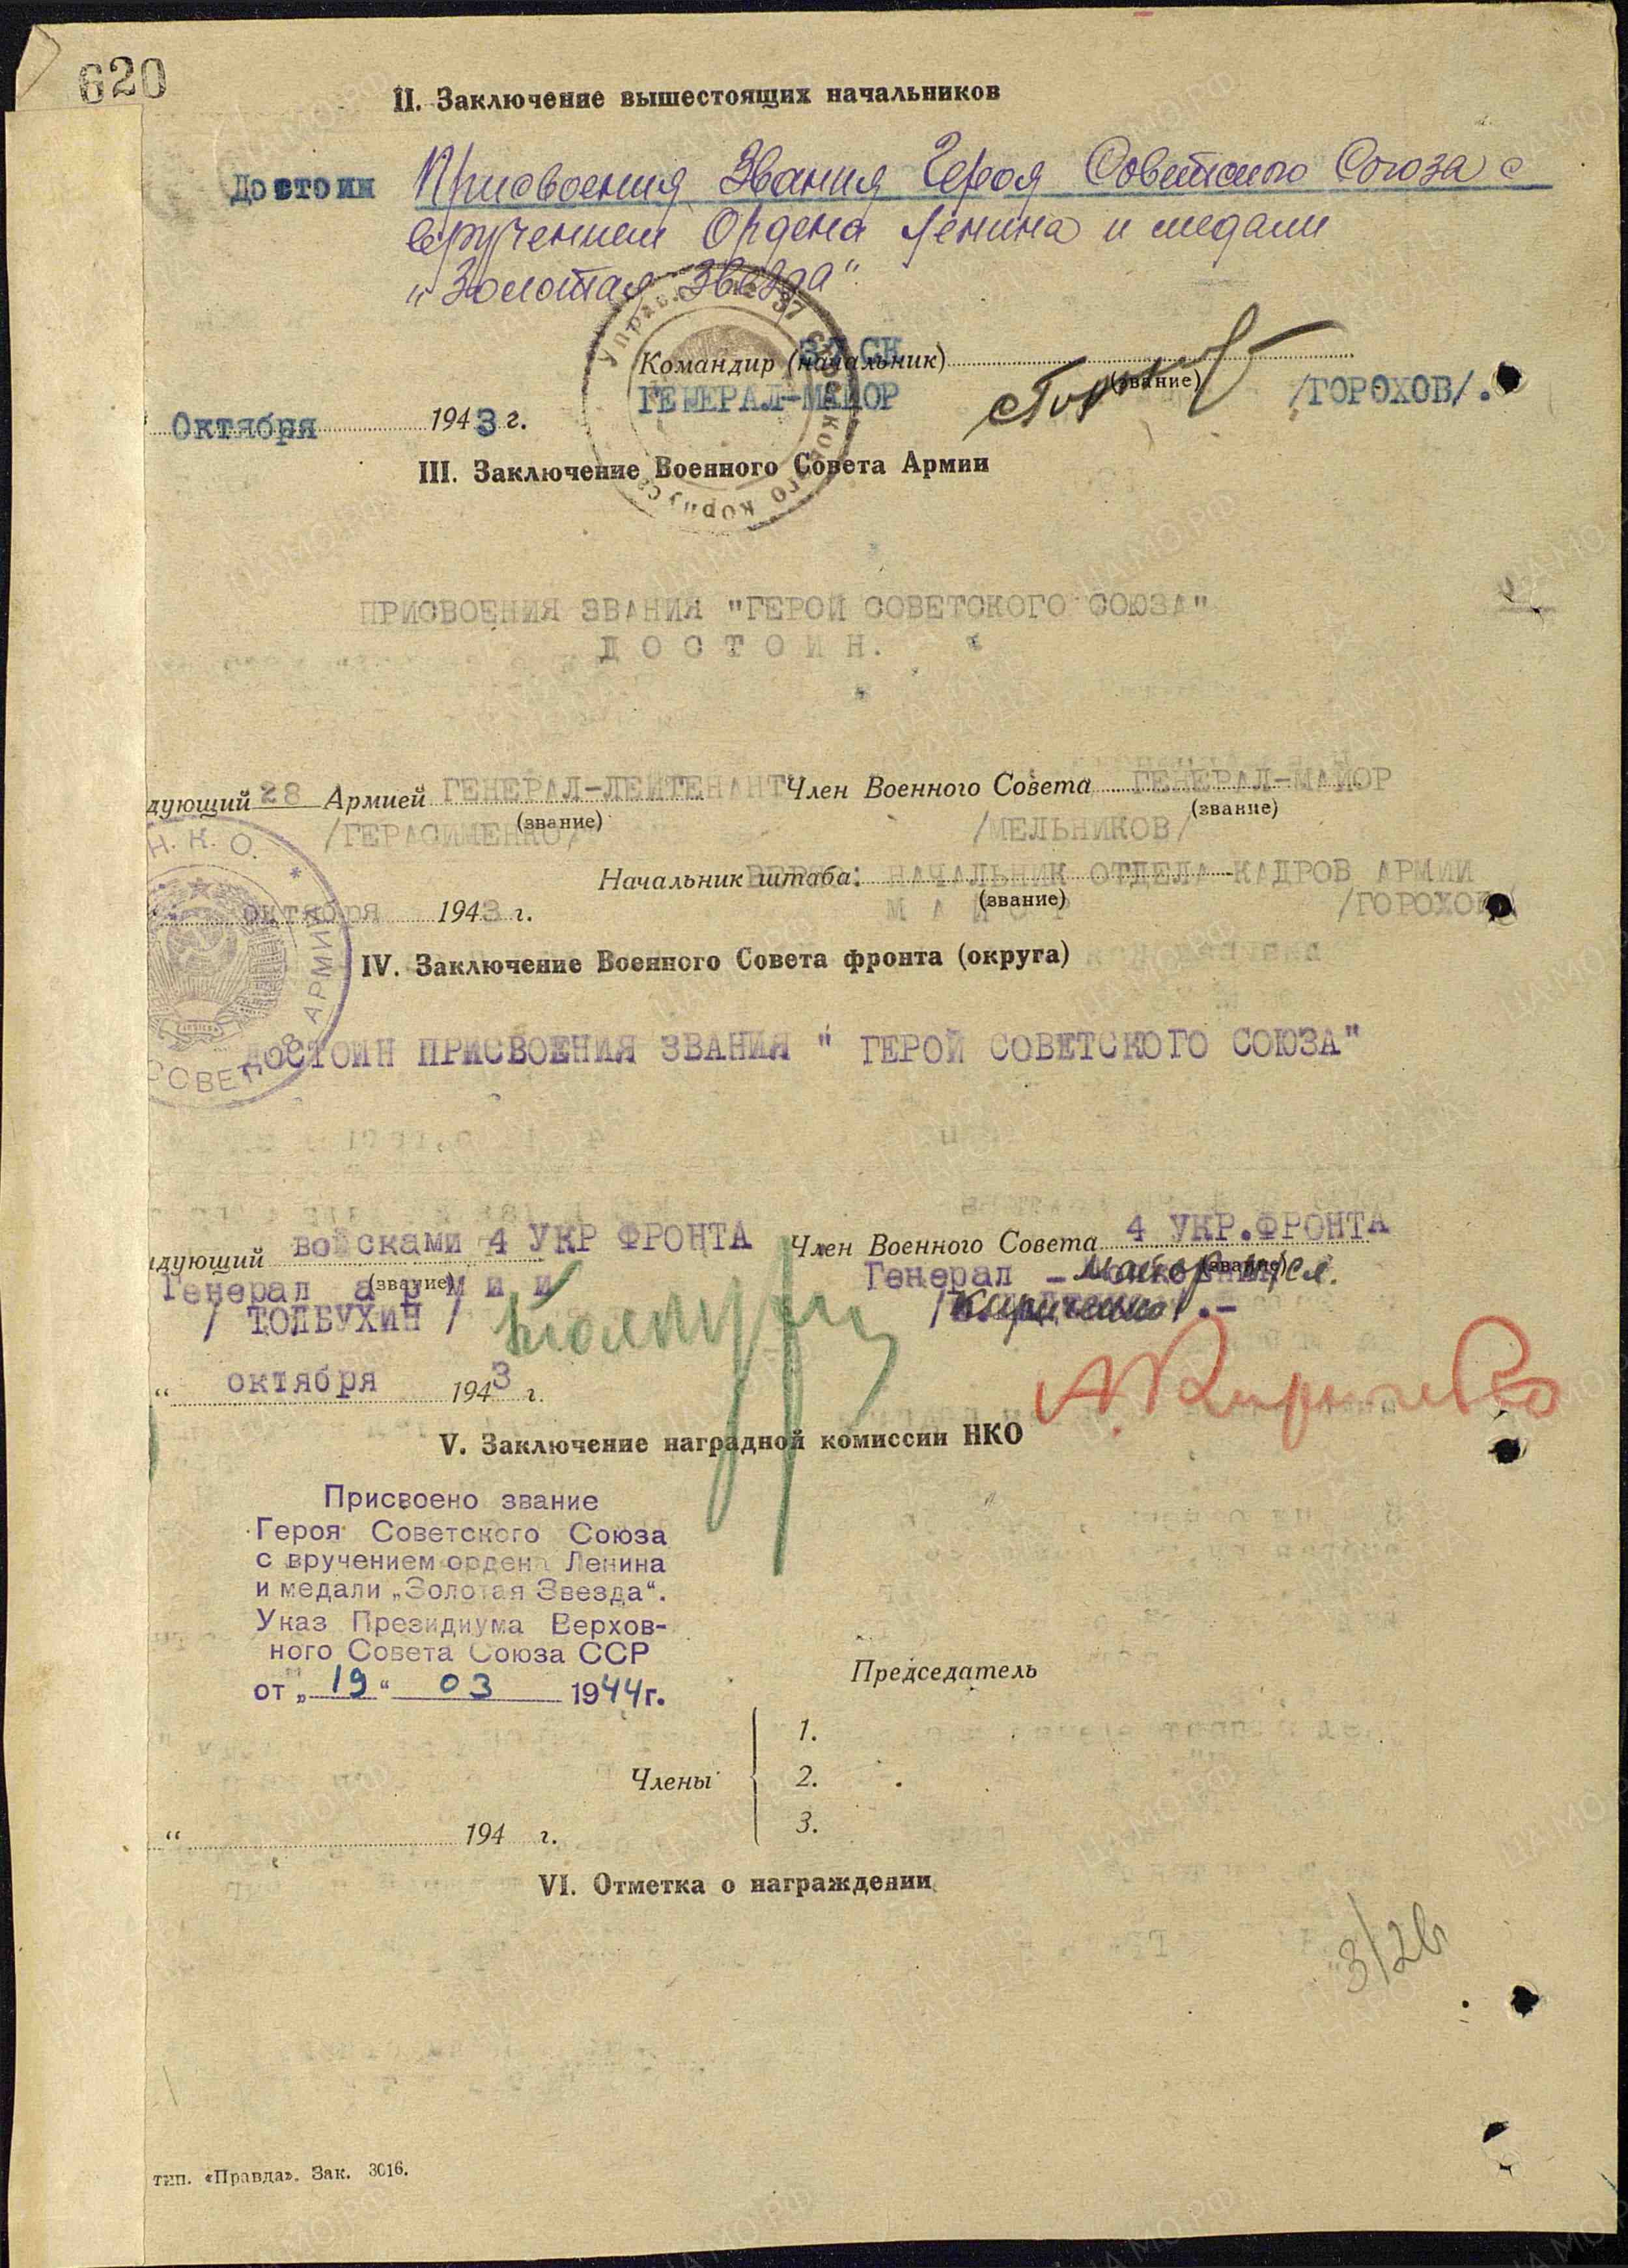 620
II. Заключение вышестоящих начальников
Достоин Присвоения Звания Героя Советского Союза с
вручением Ордена Ленина и медали
„Золотая Звезда"
37 СК
Командир (начальник)
(звание)
ГЕНЕРАЛ-МАЙОР /ГОРОХОВ/.
Октября 1943 г.
III. Заключение Военного Совета Армии
ПРИСВОЕНИЯ ЗВАНИЯ "ГЕРОЙ СОВЕТСКОГО СОЮЗА"
ДОСТОИН.
дующий 28 Армией ГЕНЕРАЛ-ЛЕЙТЕНАНТ Член Военного Совета ГЕНЕРАЛ-МАЙОР
(звание) (звание)
/ГЕРАСИМЕНКО/ /МЕЛЬНИКОВ/
Н. К. О.
Начальник штаба: НАЧАЛЬНИК ОТДЕЛА КАДРОВ АРМИИ
(звание)
МАЙОР /ГОРОХОВ/
октября 1943 г.
IV. Заключение Военного Совета фронта (округа)
ДОСТОИН ПРИСВОЕНИЯ ЗВАНИЯ " ГЕРОЙ СОВЕТСКОГО СОЮЗА"
дующий войсками 4 УКР ФРОНТА Член Военного Совета 4 УКР.ФРОНТА
(звание) (звание)
Генерал армии Генерал - майор
/ ТОЛБУХИН /
“ октября 1943 г.
V. Заключение наградной комиссии НКО
Присвоено звание
Героя Советского Союза
с вручением ордена Ленина
и медали „Золотая Звезда“.
Указ Президиума Верхов-
ного Совета Союза ССР
от „19“ 03 1944г.
Председатель
1.
Члены 2.
3.
“ 194 г.
VI. Отметка о награждении
тип. «Правда». Зак. 3016.